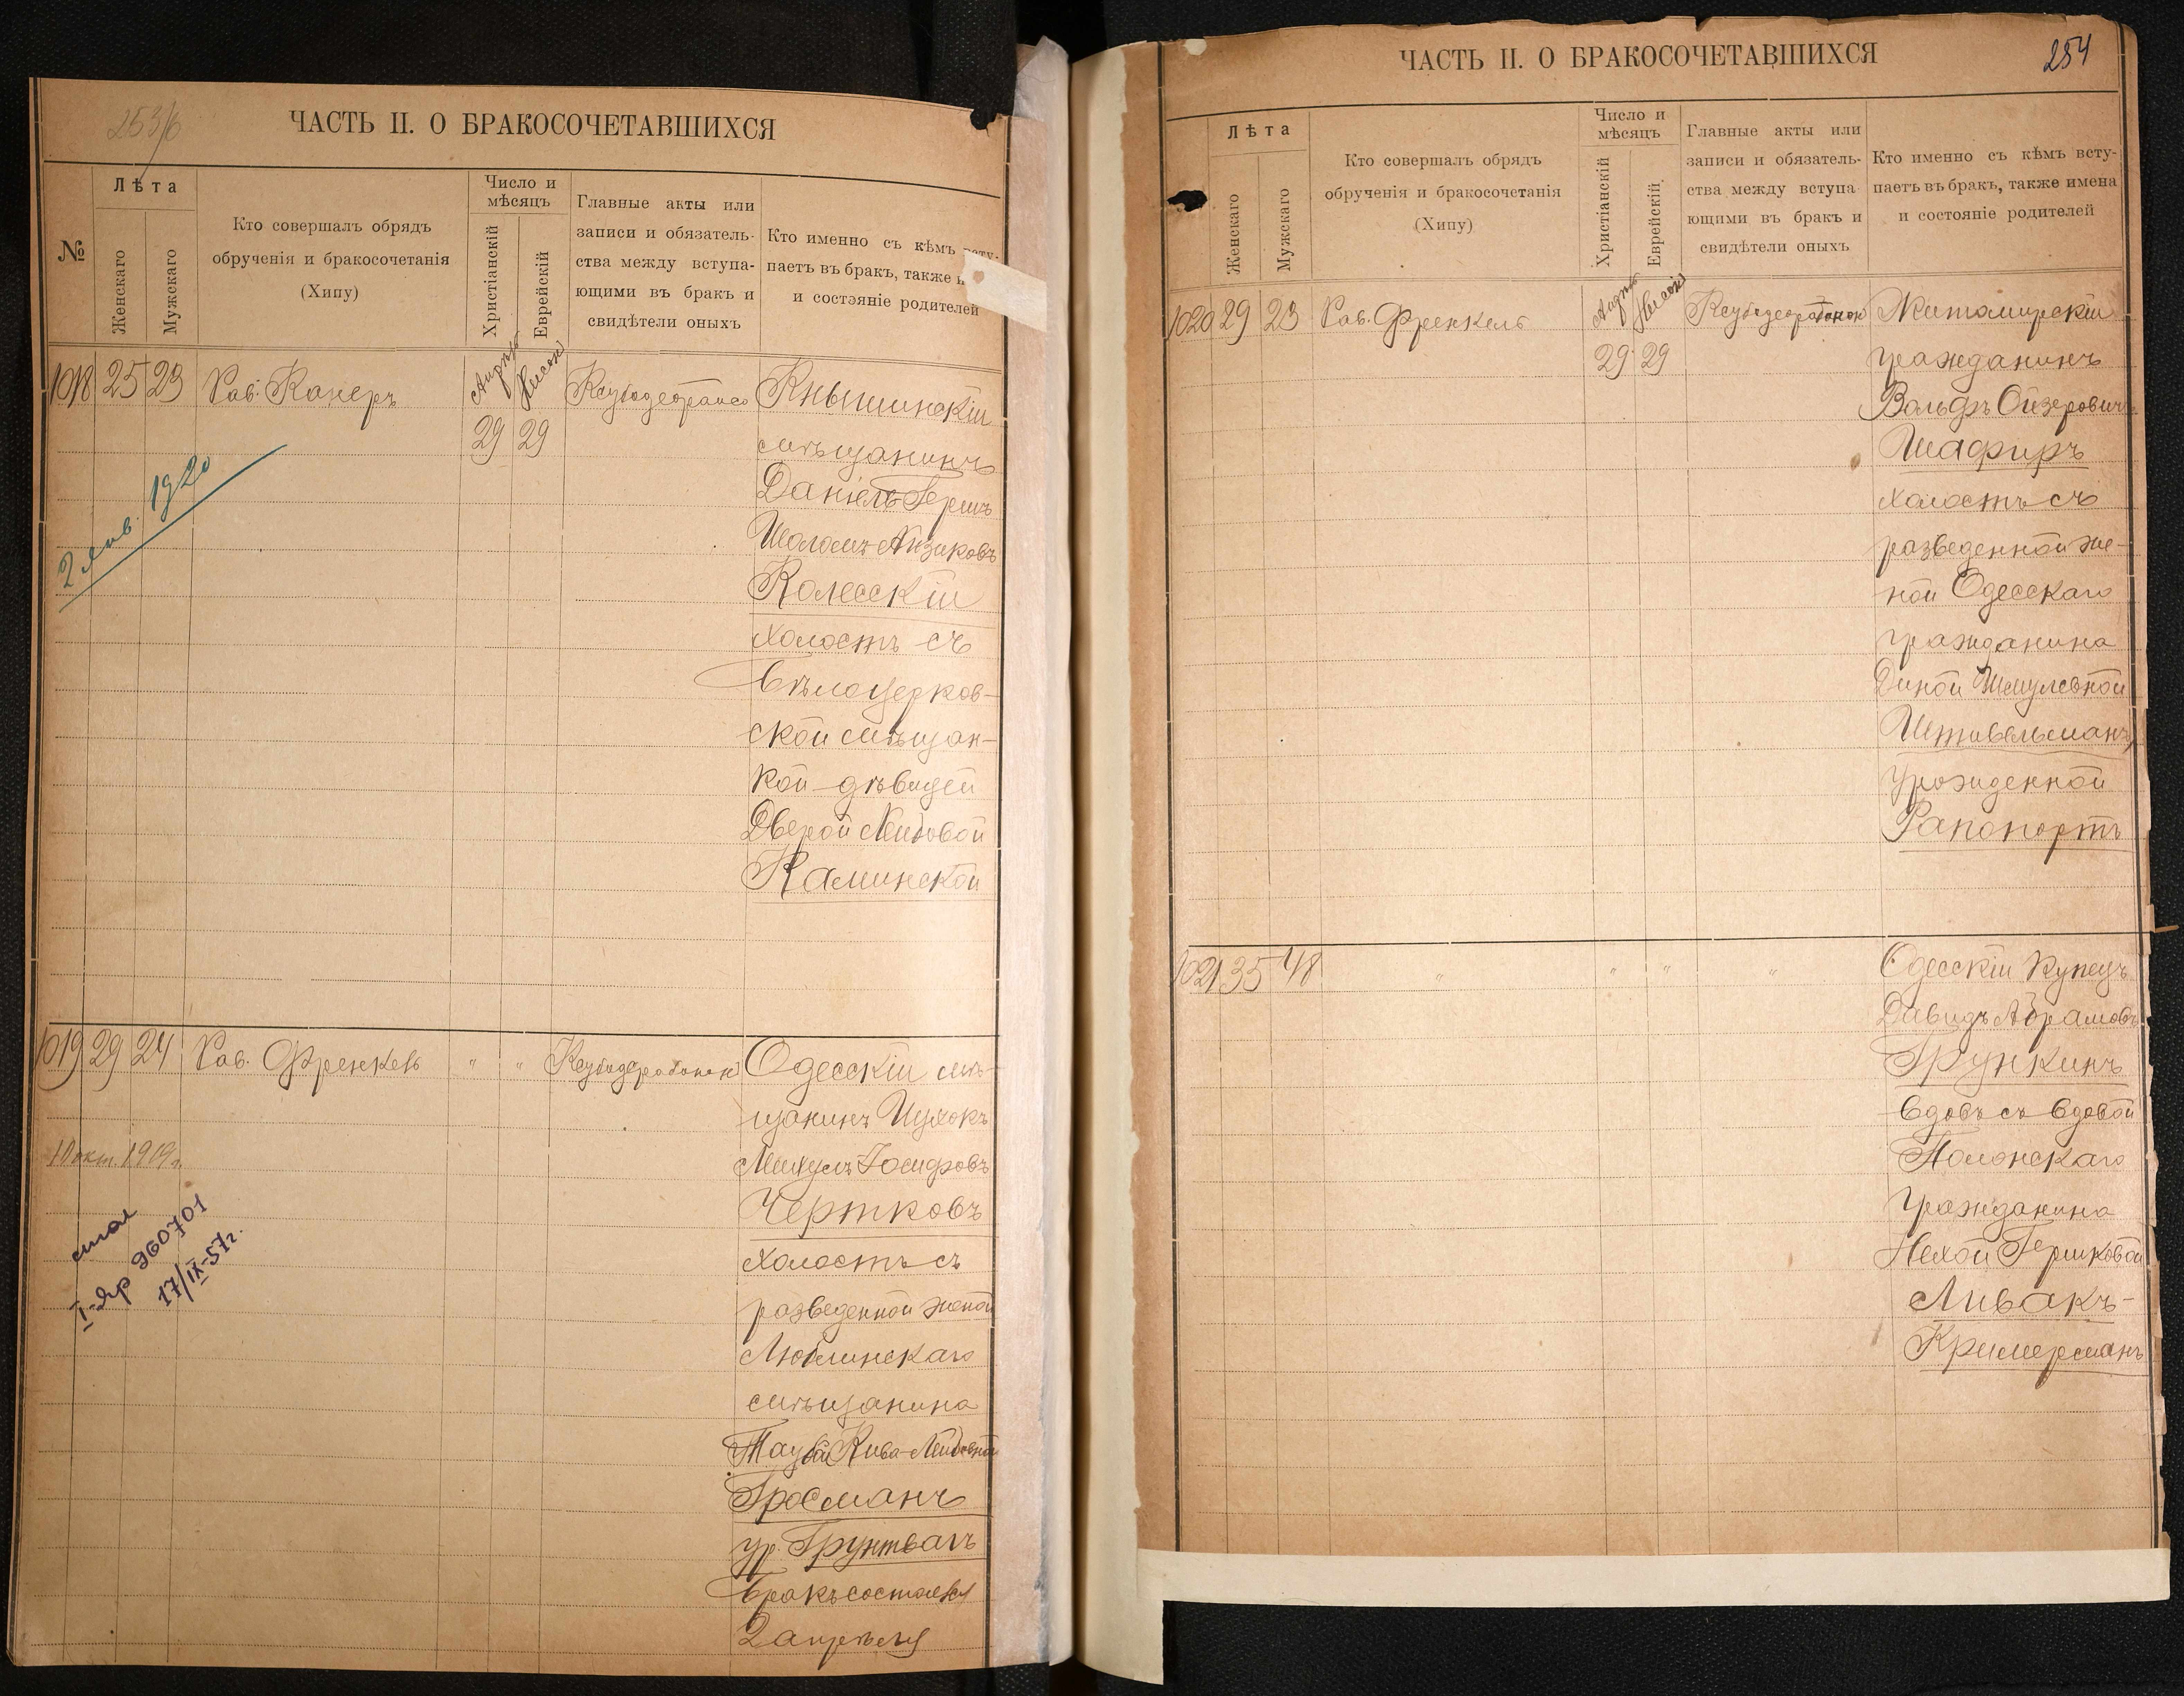 253/б
ЧАСТЬ II. О БРАКОСОЧЕТАВШИХСЯ
№
Лѣта
Женскаго
Мужскаго
Кто совершалъ обрядъ
обрученія и бракосочетанія
(Хипу)
Число и
мѣсяцъ
Христіанскій
Еврейскій
Главные акты или
записи и обязатель-
ства между вступа-
ющими въ бракъ и
свидѣтели оныхъ
Кто именно съ кѣмъ всту-
паетъ въ бракъ, также
и состояніе родителей
1018 25 23 Рав. Канеръ
29 29
Кнышинскій
мѣщанинъ
Даніель-Гершъ
Шоломъ-Айзиковъ
Колесскій
холостъ съ
бѣлоцерков-
ской мѣщан-
кой-дѣвицей
Двейрой Лейбовой
Каминской
2 янв. 1920
1019 29 24 Рав. Френкель " "
Одесскій мѣ-
щанинъ Ицхокъ
Михель Іосифовъ
Чертковъ
холостъ съ
разведенной женой
Люблинскаго
мѣщанина
Таубой Кива-Лейбовной
Гросманъ
ур. Грунтвагъ
бракъ состоялся
2 апрѣля
10 окт. 1919 г.
I-яр 960701
17/IX-57г.
254
ЧАСТЬ II. О БРАКОСОЧЕТАВШИХСЯ
Лѣта
Женскаго
Мужскаго
Кто совершалъ обрядъ
обрученія и бракосочетанія
(Хипу)
Число и
мѣсяцъ
Христіанскій
Еврейскій
Главные акты или
записи и обязатель-
ства между вступа
ющими въ бракъ и
свидѣтели оныхъ
Кто именно съ кѣмъ всту-
паетъ въ бракъ, также имена
и состояніе родителей
1020 29 23 Рав. Френкель
29 29
Житомирскій
гражданинъ
Вольфъ Ойзеровичъ
Шафиръ
холостъ съ
разведенной же-
ной Одесскаго
гражданина
Диной Шмулевной
Штивельманъ,
урожденной
Рапопортъ
1021 35 48 " " " "
Одесскій купецъ
Давидъ Абрамовъ
Грункинъ
вдовъ съ вдовой
Полонскаго
гражданина
Нехой Гершковой
Ливакъ-
Кримерманъ